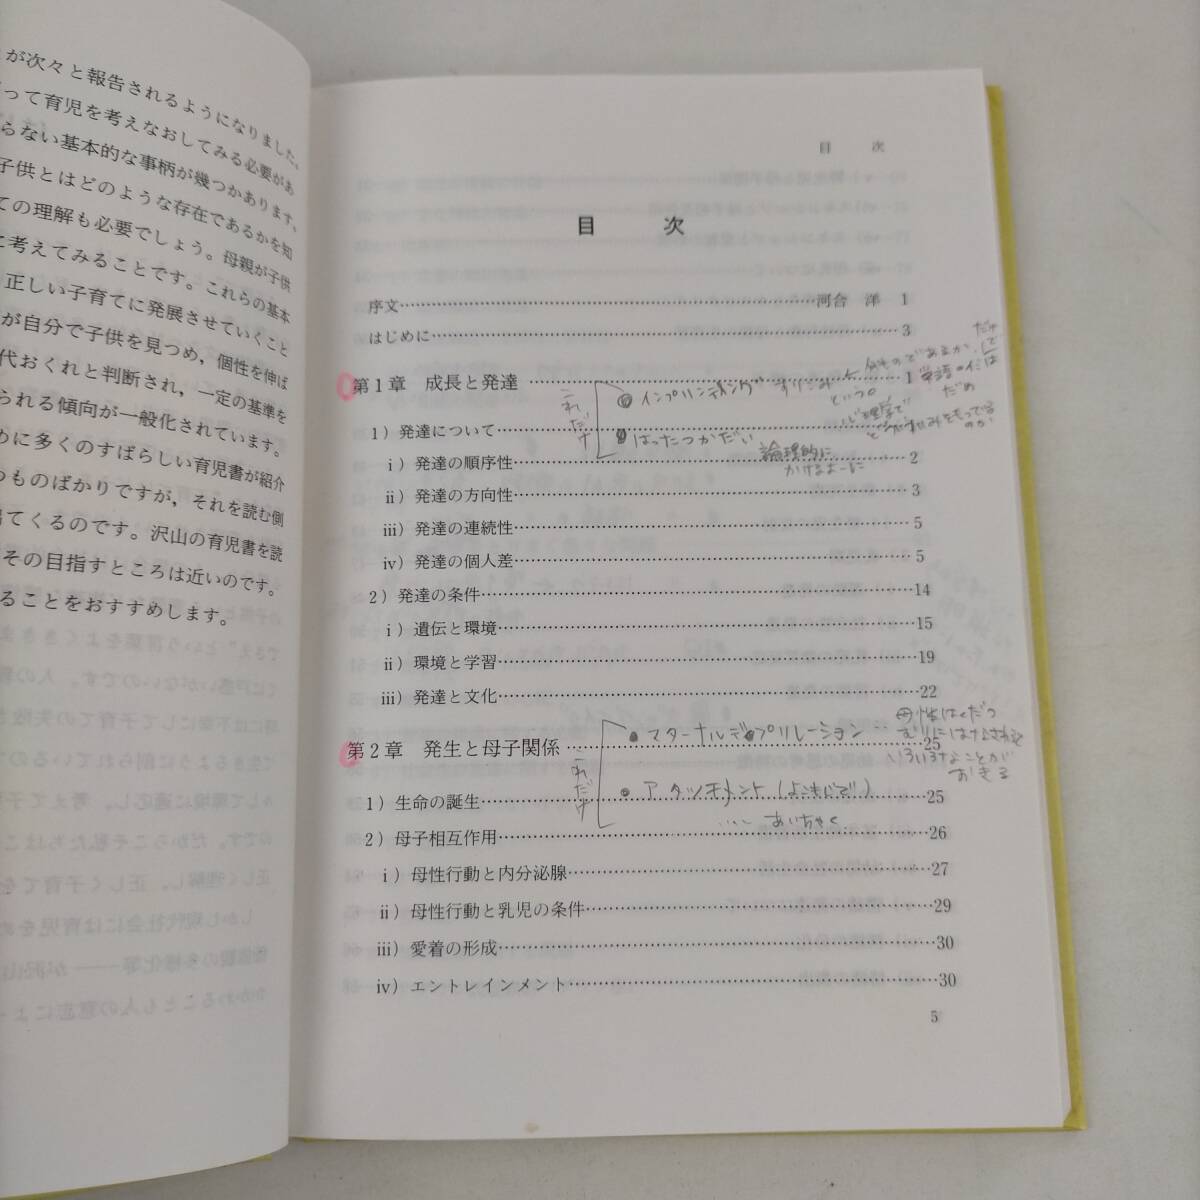 が次々と報告されるようになりました。
って育児を考えなおしてみる必要があ
らない基本的な事柄が幾つかあります。
子供とはどのような存在であるかを知
ての理解も必要でしょう。母親が子供
に考えてみることです。これらの基本
正しい子育てに発展させていくこと
が自分で子供を見つめ，個性を伸ば
代おくれと判断され，一定の基準を
られる傾向が一般化されています。
めに多くのすばらしい育児書が紹介
つものばかりですが，それを読む側
出てくるのです。沢山の育児書を読
その目指すところは近いのです。
ることをおすすめします。
目　次
目　次
序文……河合　洋　1
はじめに……3
第1章　成長と発達……1
これだけ
インプリンティング すりこみ
という。
だめ
1）発達について……
はったつかだい
論理的に
かけるよーに
i）発達の順序性……2
ii）発達の方向性……3
iii）発達の連続性……5
iv）発達の個人差……5
2）発達の条件……14
i）遺伝と環境……15
ii）環境と学習……19
iii）発達と文化……22
第2章　発生と母子関係……25
これだけ
マターナルデプリレーション
母性はくだつ
いろいろなことが
おきる
1）生命の誕生……25
アタッチメント
あいちゃく
2）母子相互作用……26
i）母性行動と内分泌腺……27
ii）母性行動と乳児の条件……29
iii）愛着の形成……30
iv）エントレインメント……30
5